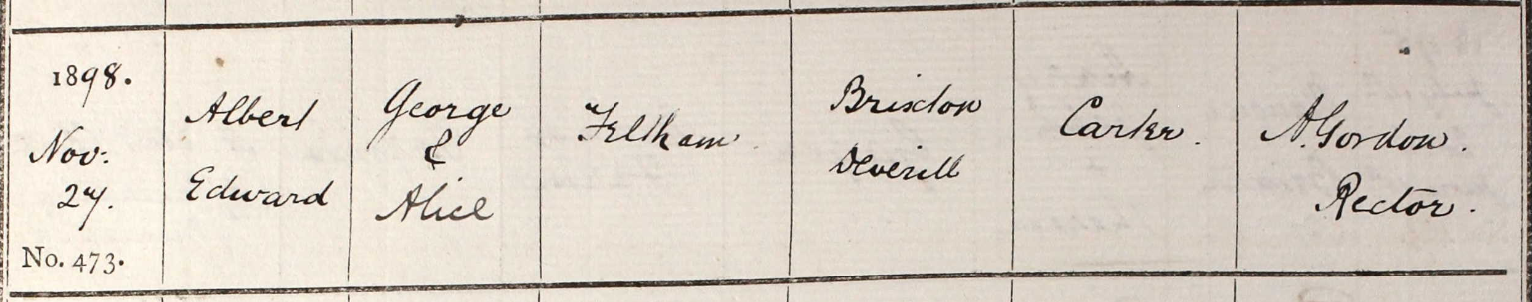 1898.
Nov.
27.
No. 473.
Albert
Edward
George
&
Alice
Feltham
Brixton
Deverill
Carter.
A. Gordon.
Rector.